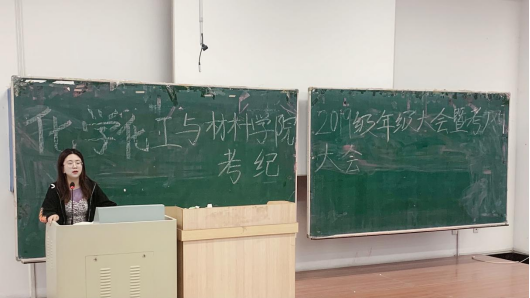 化学化工与材料学院
考纪
2019级年级大会暨考风
大会